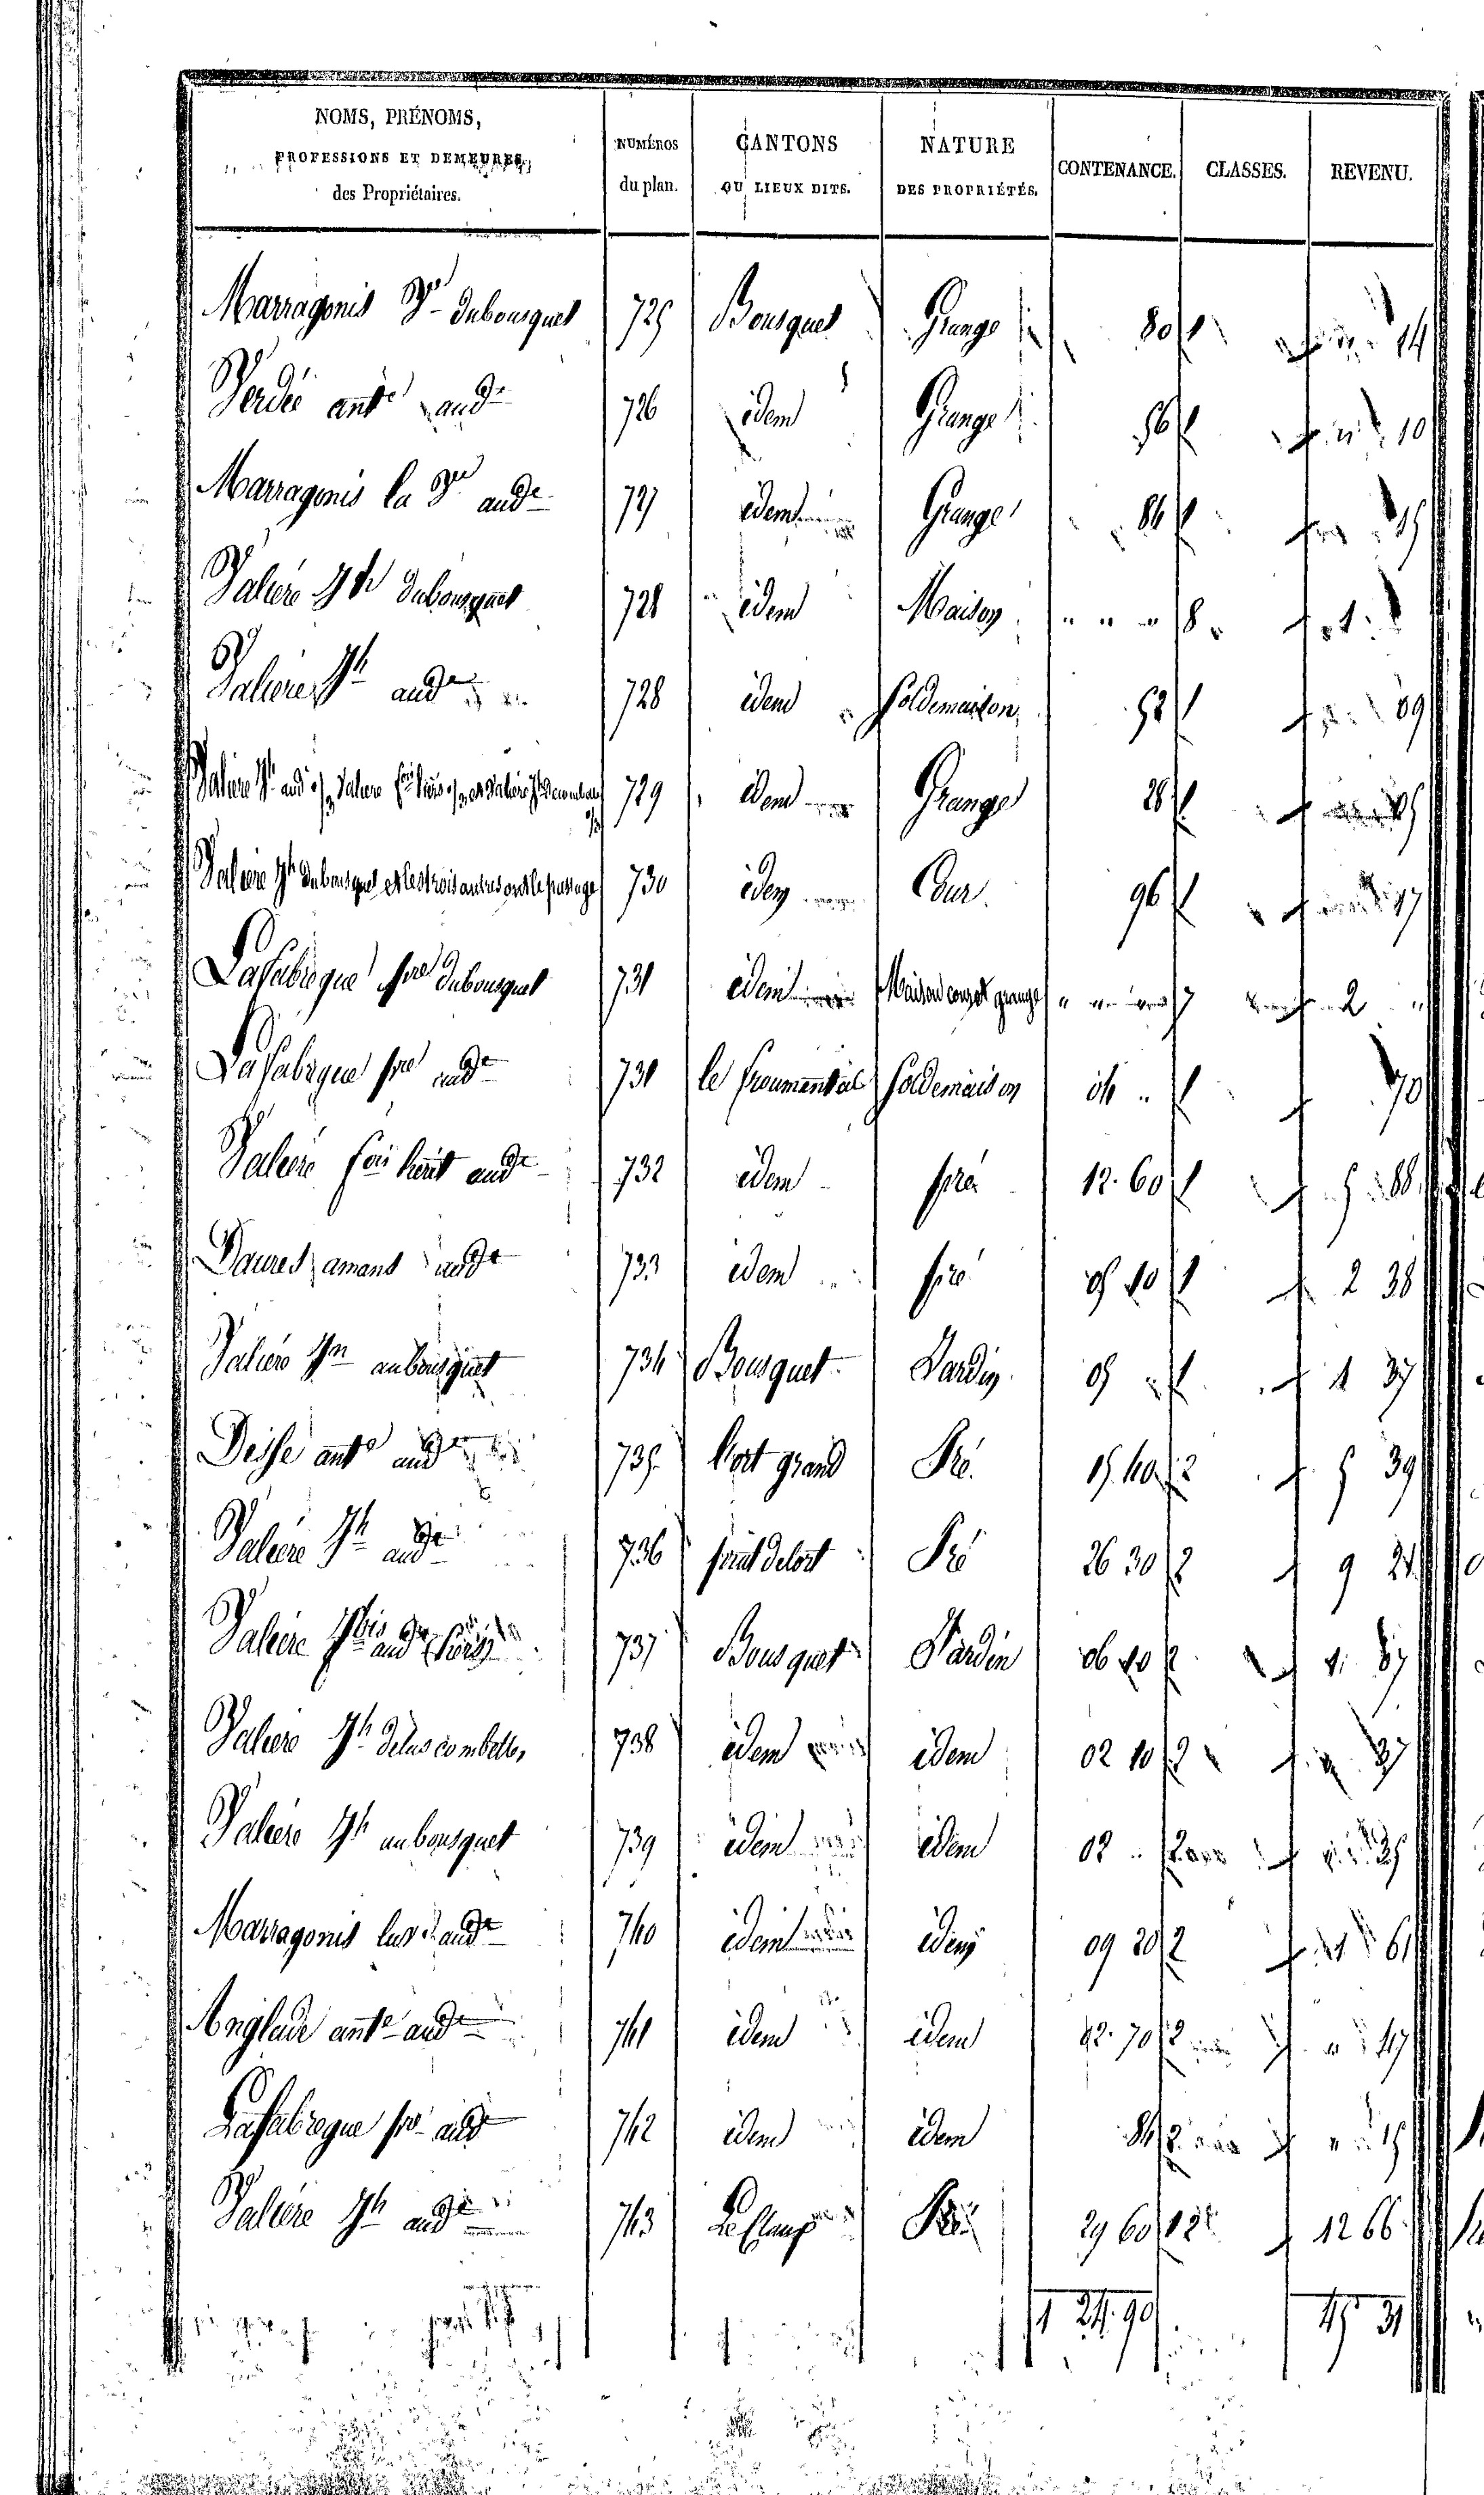 NOMS, PRÉNOMS, PROFESSIONS ET DEMEURES, des Propriétaires. NUMÉROS du plan. CANTONS OU LIEUX DITS. NATURE DES PROPRIÉTÉS. CONTENANCE. CLASSES. REVENU.
Marragonis dubousquet 725 Bousquet Grange 80 1 14
Verdié ante aud 726 idem Grange 56 1 " 10
Marragonis la aud 727 idem Grange 84 1 15
Valière Jh dubousquet 728 idem Maison " " " 8 1
Valière Jh aud 728 idem Sol de maison 52 1 09
Valière Jh aud 729 idem Grange 28 1 05
Valière Jh dubousquet et les trois autres ont le passage 730 idem Cour 96 1 17
Lafabregue pre dubousquet 731 idem Maison cour et grange " 7 2 "
Lafabregue pre aud 731 le froumental Sol de maison 04 " 1 70
Valière fois aud 732 idem pré 12 60 1 5 88
Daures amans aud 733 idem pré 05 10 1 2 38
Valière aubousquet 734 Bousquet Jardin 05 " 1 1 37
Deisse ante aud 735 l'ort grand Pré 15 40 2 5 39
Valière Jh aud 736 Pré 26 30 2 9 21
Valière aud 737 Bousquet Jardin 06 40 2 1 87
Valière Jh delas combelles 738 idem idem 02 10 2 " 37
Valière Jh aubousquet 739 idem idem 02 " 2 " 35
Marragonis aud 740 idem idem 09 20 2 1 61
Anglade ante aud 741 idem idem 02 70 2 " 47
Lafabregue pre aud 742 idem idem 84 2 " 15
Valière Jh aud 743 Pré 29 60 12 66
1 24 90 45 31